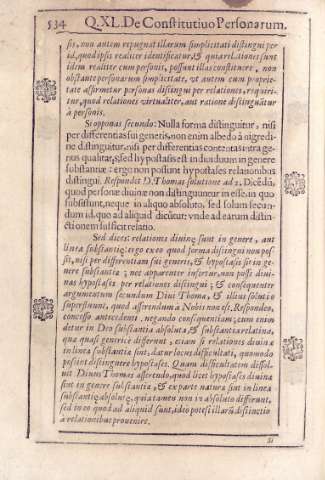 534 Q.XL. De Constitutiuo Personarum.
sis, non autem repugnat illarum simplicitati distingui per
id, quod ipsis realiter identificatur, & quia relationes sunt
idem realiter cum personis, possunt illas constituere, non
obstante personarum simplicitate, vt autem cum proprie-
tate affirmetur personas distingui per relationes, requiri-
tur, quod relationes virtualiter, aut ratione distinguātur
à personis.
Si opponas secundo: Nulla forma distinguitur, nisi
per differentias sui generis, non enim albedo à nigredi-
ne distinguitur, nisi per differentias contentas intra ge-
nus qualitatis, sed hypostasis est indiuiduum in genere
substantiæ: ergo non possunt hypostases relationibus
distingui. Respondet D. Thomas solutione ad 2. Dicēdū,
quod personæ diuinæ non distinguuntur in esse, in quo
subsistunt, neque in aliquo absoluto, sed solum secun-
dum id, quo ad aliquid dicūtur: vnde ad earum distin-
ctionem sufficit relatio.
Sed dices: relationes diuinę sunt in genere, aut
linea substantię: ergo ex eo quod forma distingui non pos-
sit, nisi per differentiam sui generis, & hypostasis sit in ge-
nere substantiæ; nec apparenter infertur, non posse diui-
nas hypostases per relationes distingui; & consequenter
argumentum secundum Diui Thomæ, & illius solutio
superfluunt, quod asserendum à Nobis non est. Respondeo,
concesso antecedente, negando consequentiam; cum enim
detur in Deo substantia absoluta, & substantia relatiua,
quæ quasi genericè differunt, etiam si relationes diuinæ
in linea substantiæ sint, datur locus difficultati, quomodo
possint distinguere hypostases. Quam difficultatem dissol-
uit Diuus Thomas asserendo, quod licet hypostases diuinæ
sint in genere substantiæ, & ex parte naturæ sint in linea
substantię absolutę, quia tamen non in absoluto differunt,
sed in eo quod ad aliquid sunt, ideo potest illarū distinctio
à relationibus prouenire.
Si